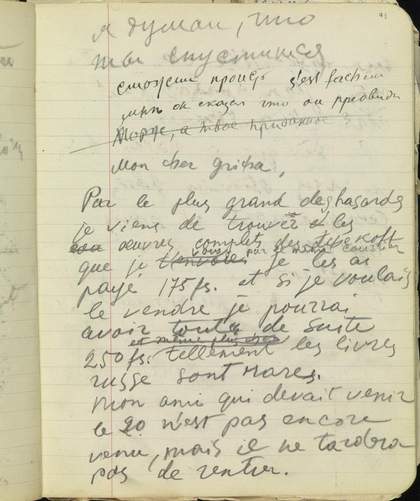 я думал, что
мы спустимся
сможем пройти s'est fachée
он сказал что он
Мордж, а твое приданное?
Mon cher Grisha,
Par le plus grand des hasards
je viens de trouver les
oeuvres complets des
que je t'envoies je les ai
payé 175 fs. et si je voulais
le vendre je pourrai
avoir toutes de suite
et même plus
250 fs. tellement les livres
russe sont rares.
Mon ami qui devait venir
le 20 n'est pas encore
venu, mais il ne tardera
pas de rentrer.